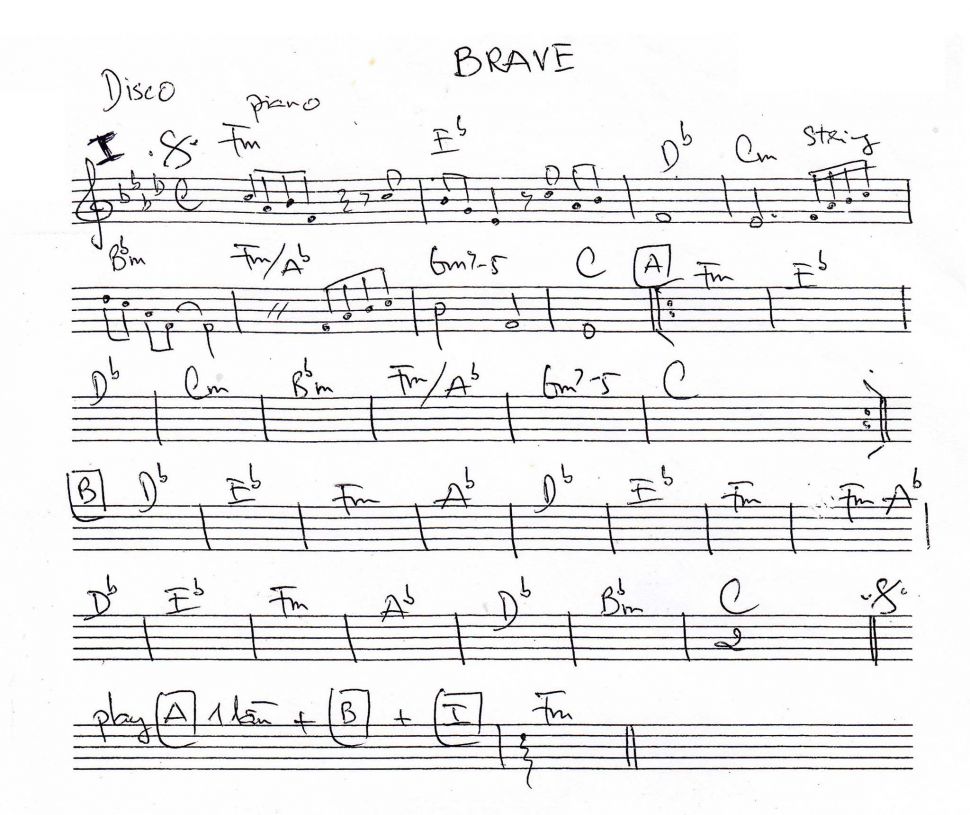 BRAVE
Disco
piano
I Fm E♭ D♭ Cm string
B♭m Fm/A♭ Gm7-5 C A Fm E♭
D♭ Cm B♭m Fm/A♭ Gm7-5 C
B D♭ E♭ Fm A♭ D♭ E♭ Fm Fm A♭
D♭ E♭ Fm A♭ D♭ B♭m C
2
play A 1 lần + B + I Fm